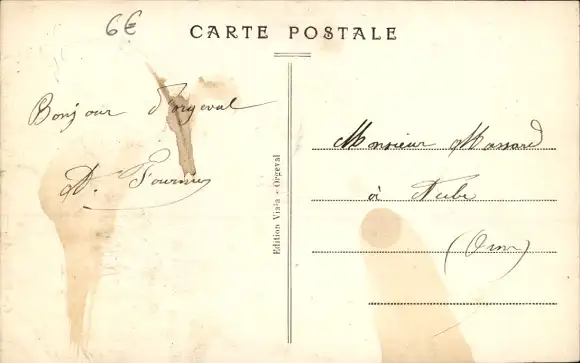 6€
CARTE POSTALE
Bonjour d'Orgeval
D. Fournier
Edition Viala - Orgeval
Monsieur Massard
à
(Orne)